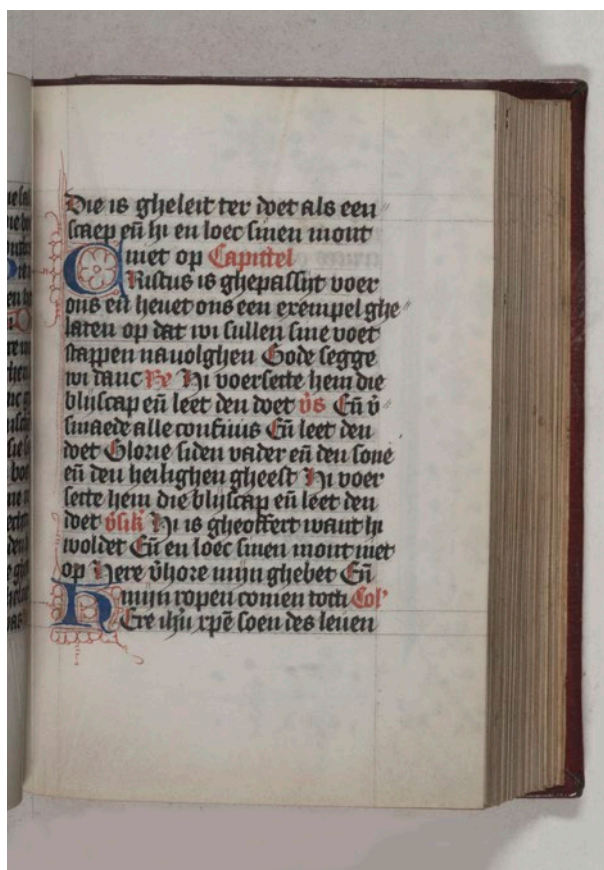 Die is gheleit ter doet als een
scaep eñ hi en loec sinen mont
niet op Capittel
CRistus is ghepassijt voer
ons eñ heuet ons een exempel ghe
laten op dat wi sullen sine voet
stappen nauolghen Gode segge
wi danc Re Hi voersette hem die
blijscap eñ leet den doet v̾s Eñ v̾
smaede alle confuus Eñ leet den
doet Glorie si den vader eñ den sone
eñ den heilighen gheest Hi voer
sette hem die blijscap eñ leet den
doet v̾sik̾ Hi is gheoffert want hi
woldet Eñ en loec sinen mont niet
op Here v̾hore mijn ghebet Eñ
mijn ropen comen tot ti Col'
HEre ihũ xpē soen des leuen